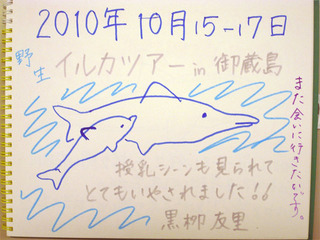 2010年10月15-17日
野生
イルカツアー in 御蔵島
また会いに行きたいです。
授乳シーンも見られて
とてもいやされました!!
黒柳友里